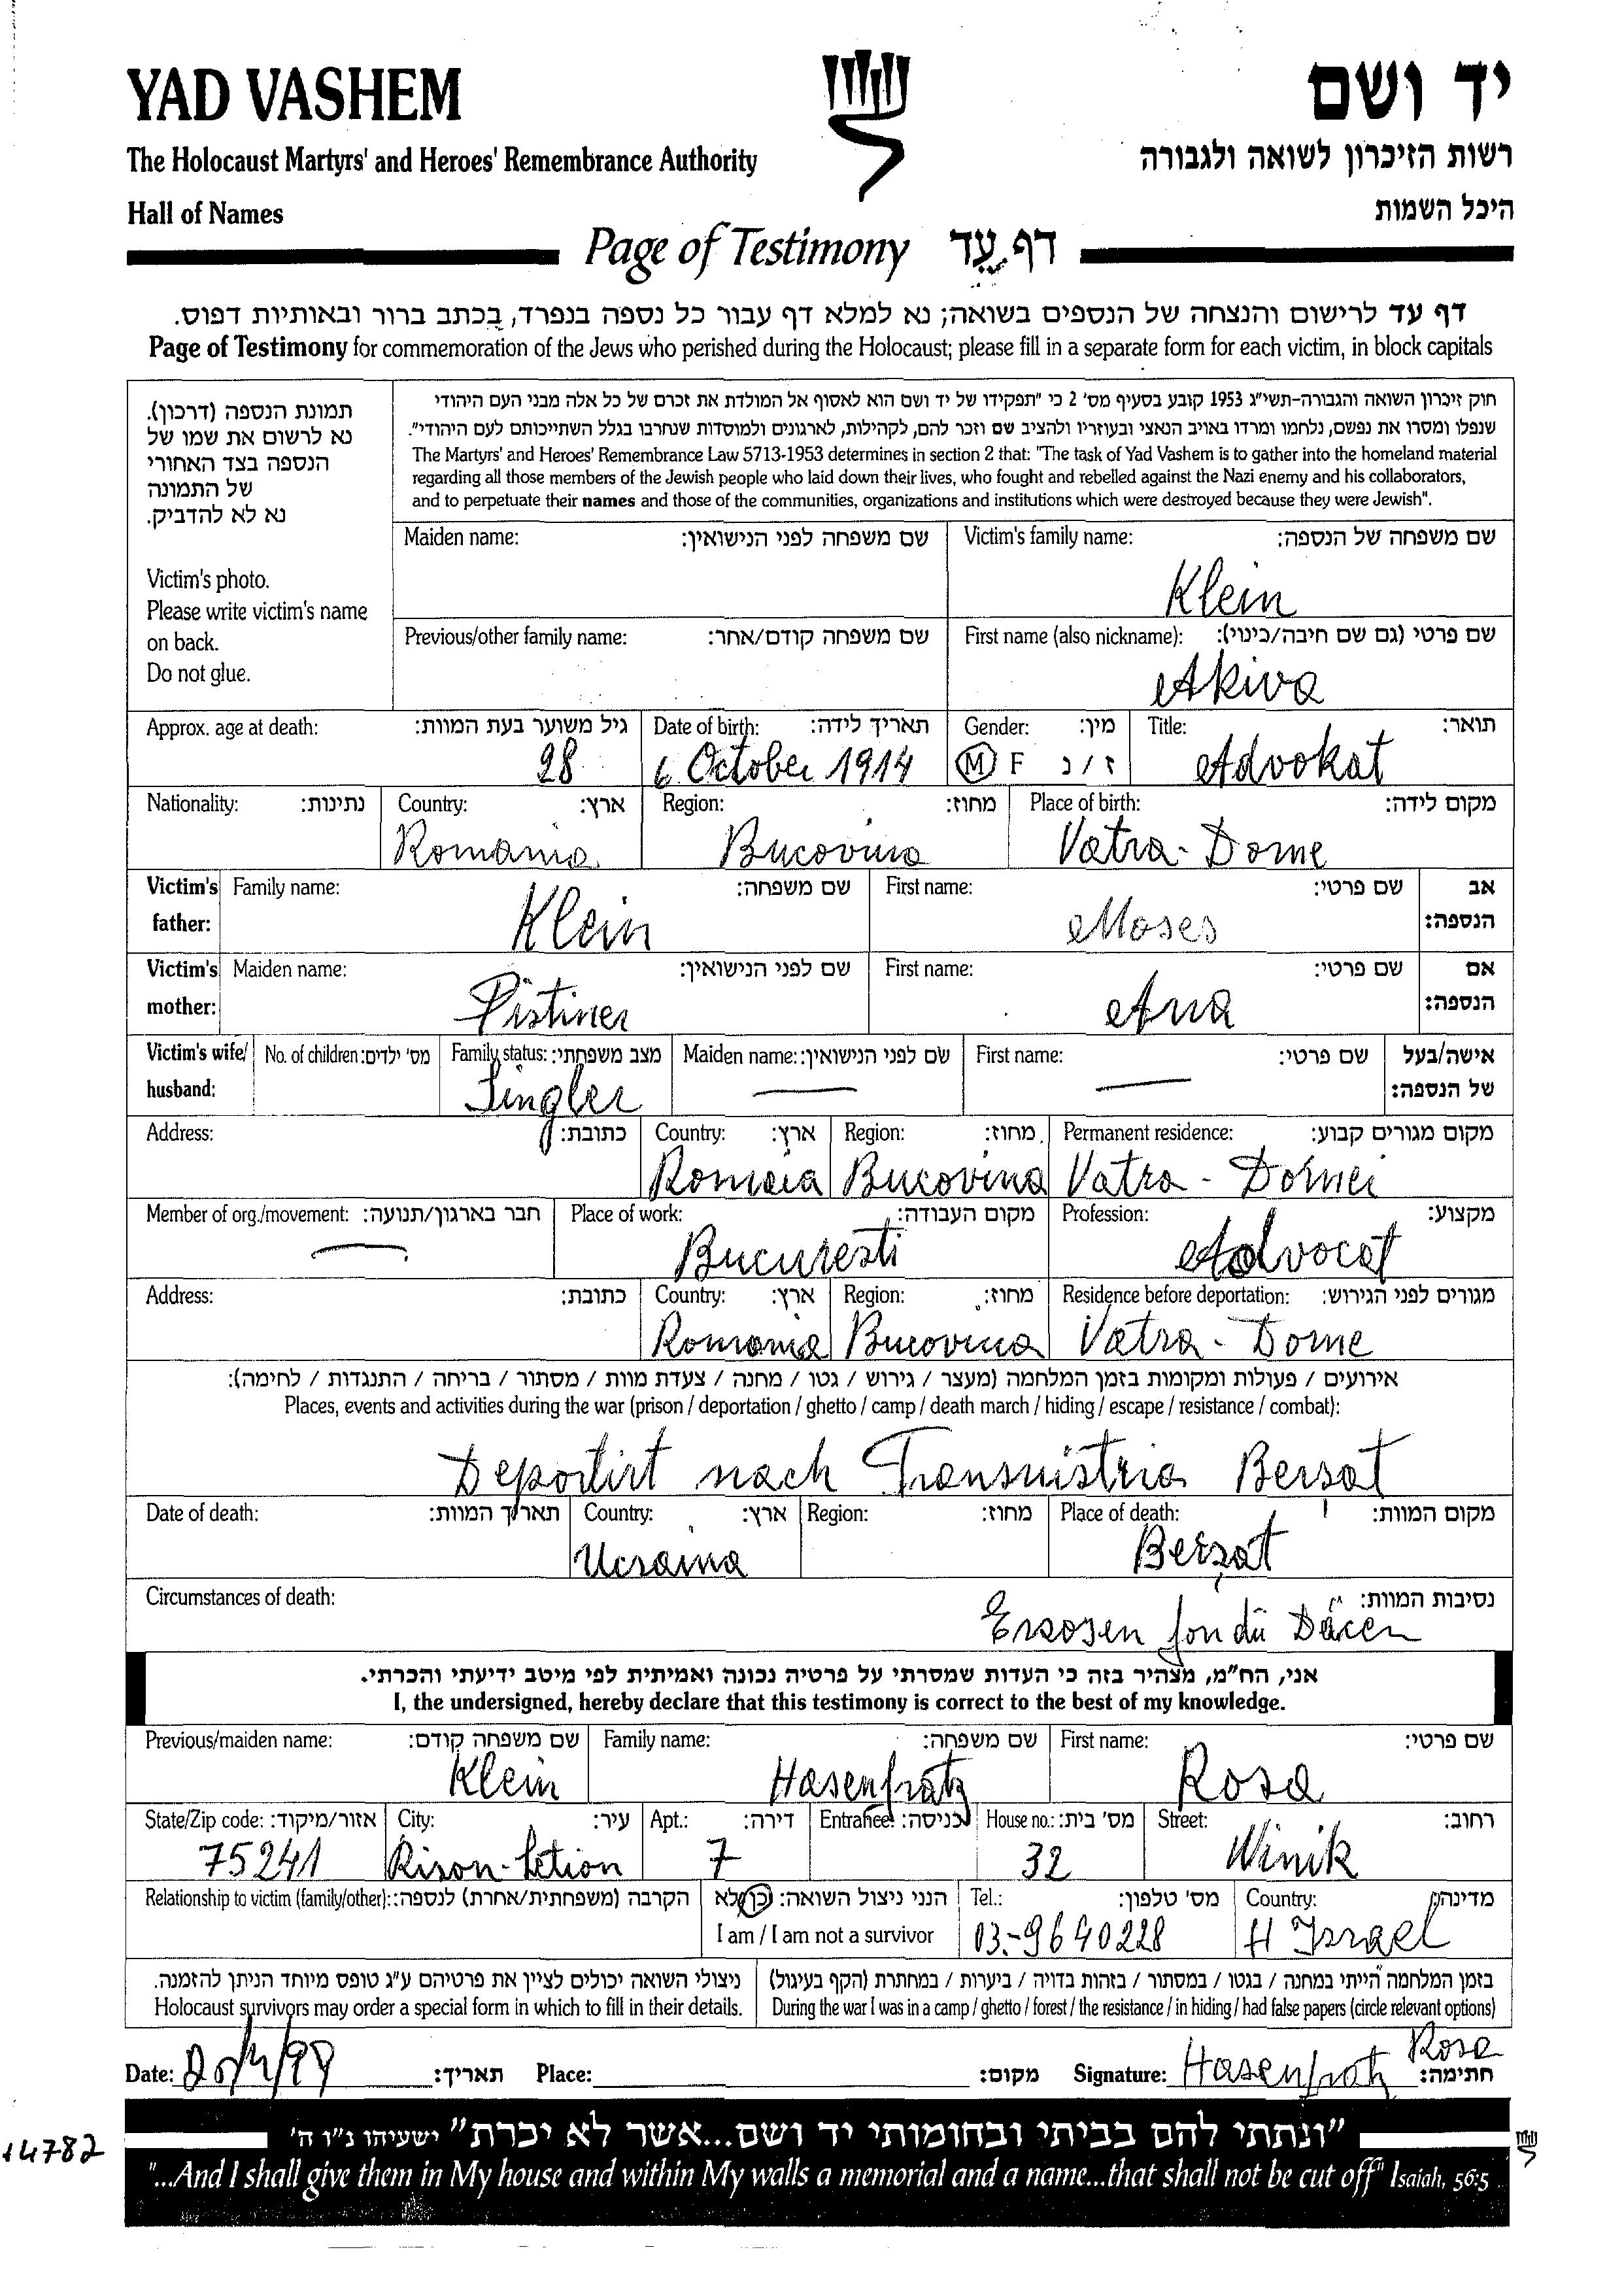 YAD VASHEM
יד ושם
The Holocaust Martyrs' and Heroes' Remembrance Authority
רשות הזיכרון לשואה ולגבורה
Hall of Names
היכל השמות
Page of Testimony דף עֵד
דף עד לרישום והנצחה של הנספים בשואה; נא למלא דף עבור כל נספה בנפרד, בכתב ברור ובאותיות דפוס.
Page of Testimony for commemoration of the Jews who perished during the Holocaust; please fill in a separate form for each victim, in block capitals
תמונת הנספה (דרכון).
נא לרשום את שמו של
הנספה בצד האחורי
של התמונה
נא לא להדביק.
Victim's photo.
Please write victim's name
on back.
Do not glue.
חוק זיכרון השואה והגבורה-תשי"ג 1953 קובע בסעיף מס' 2 כי "תפקידו של יד ושם הוא לאסוף אל המולדת את זכרם של כל אלה מבני העם היהודי
שנפלו ומסרו את נפשם, נלחמו ומרדו באויב הנאצי ובעוזריו ולהציב שם וזכר להם, לקהילות, לארגונים ולמוסדות שנחרבו בגלל השתייכותם לעם היהודי".
The Martyrs' and Heroes' Remembrance Law 5713-1953 determines in section 2 that: "The task of Yad Vashem is to gather into the homeland material
regarding all those members of the Jewish people who laid down their lives, who fought and rebelled against the Nazi enemy and his collaborators,
and to perpetuate their names and those of the communities, organizations and institutions which were destroyed because they were Jewish".
Maiden name: שם משפחה לפני הנישואין: Victim's family name: שם משפחה של הנספה:
Klein
Previous/other family name: שם משפחה קודם/אחר: First name (also nickname): שם פרטי (גם שם חיבה/כינוי):
Akiva
Approx. age at death: גיל משוער בעת המוות: Date of birth: תאריך לידה: Gender: מין: Title: תואר:
28 6 October 1914 M F ז / נ Advokat
Nationality: נתינות: Country: ארץ: Region: מחוז: Place of birth: מקום לידה:
Romania Bucovina Vatra-Dorne
Victim's father: Family name: שם משפחה: First name: שם פרטי: אב הנספה:
Klein Moses
Victim's mother: Maiden name: שם לפני הנישואין: First name: שם פרטי: אם הנספה:
Pistiner Ana
Victim's wife/ husband: No. of children: מס' ילדים: Family status: מצב משפחתי: Maiden name: שם לפני הנישואין: First name: שם פרטי: אישה/בעל של הנספה:
Singler — —
Address: כתובת: Country: ארץ: Region: מחוז: Permanent residence: מקום מגורים קבוע:
Bucovina Vatra-Dornei
Member of org./movement: חבר בארגון/תנועה: Place of work: מקום העבודה: Profession: מקצוע:
— Bucuresti Advocat
Address: כתובת: Country: ארץ: Region: מחוז: Residence before deportation: מגורים לפני הגירוש:
Romania Bucovina Vatra-Dorne
אירועים / פעולות ומקומות בזמן המלחמה (מעצר / גירוש / גטו / מחנה / צעדת מוות / מסתור / בריחה / התנגדות / לחימה):
Places, events and activities during the war (prison / deportation / ghetto / camp / death march / hiding / escape / resistance / combat):
Deportirt nach Transnistria Bersat
Date of death: תאריך המוות: Country: ארץ: Region: מחוז: Place of death: מקום המוות:
Ucraina Bersat
Circumstances of death: נסיבות המוות:
אני, הח"מ, מצהיר בזה כי העדות שמסרתי על פרטיה נכונה ואמיתית לפי מיטב ידיעתי והכרתי.
I, the undersigned, hereby declare that this testimony is correct to the best of my knowledge.
Previous/maiden name: שם משפחה קודם: Family name: שם משפחה: First name: שם פרטי:
Klein Hasenfratz Rosa
State/Zip code: אזור/מיקוד: City: עיר: Apt.: דירה: Entrance: כניסה: House no.: מס' בית: Street: רחוב:
75241 Rison-Letion 7 32 Winik
Relationship to victim (family/other): הקרבה (משפחתית/אחרת) לנספה: הנני ניצול השואה: כן/לא Tel.: מס' טלפון: Country: מדינה:
I am / I am not a survivor 03-9640228 Israel
ניצולי השואה יכולים לציין את פרטיהם ע"ג טופס מיוחד הניתן להזמנה.
Holocaust survivors may order a special form in which to fill in their details.
בזמן המלחמה הייתי במחנה / בגטו / במסתור / בזהות בדויה / ביערות / במחתרת (הקף בעיגול)
During the war I was in a camp / ghetto / forest / the resistance / in hiding / had false papers (circle relevant options)
Date: תאריך: Place: מקום: Signature: Hasenfratz Rosa חתימה:
"ונתתי להם בביתי ובחומותי יד ושם...אשר לא יכרת" ישעיהו נ"ו ה'
14782
"...And I shall give them in My house and within My walls a memorial and a name...that shall not be cut off" Isaiah, 56:5